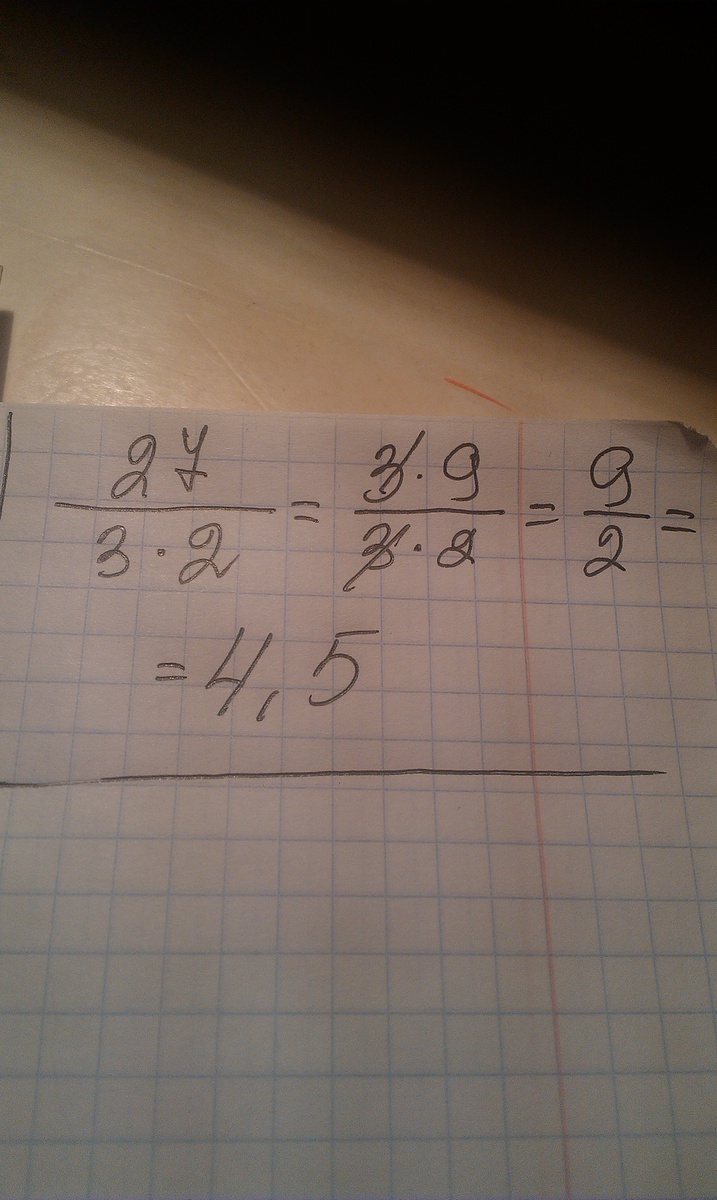 27/(3 · 2) = (3 · 9)/(3 · 2) = 9/2 =
= 4,5